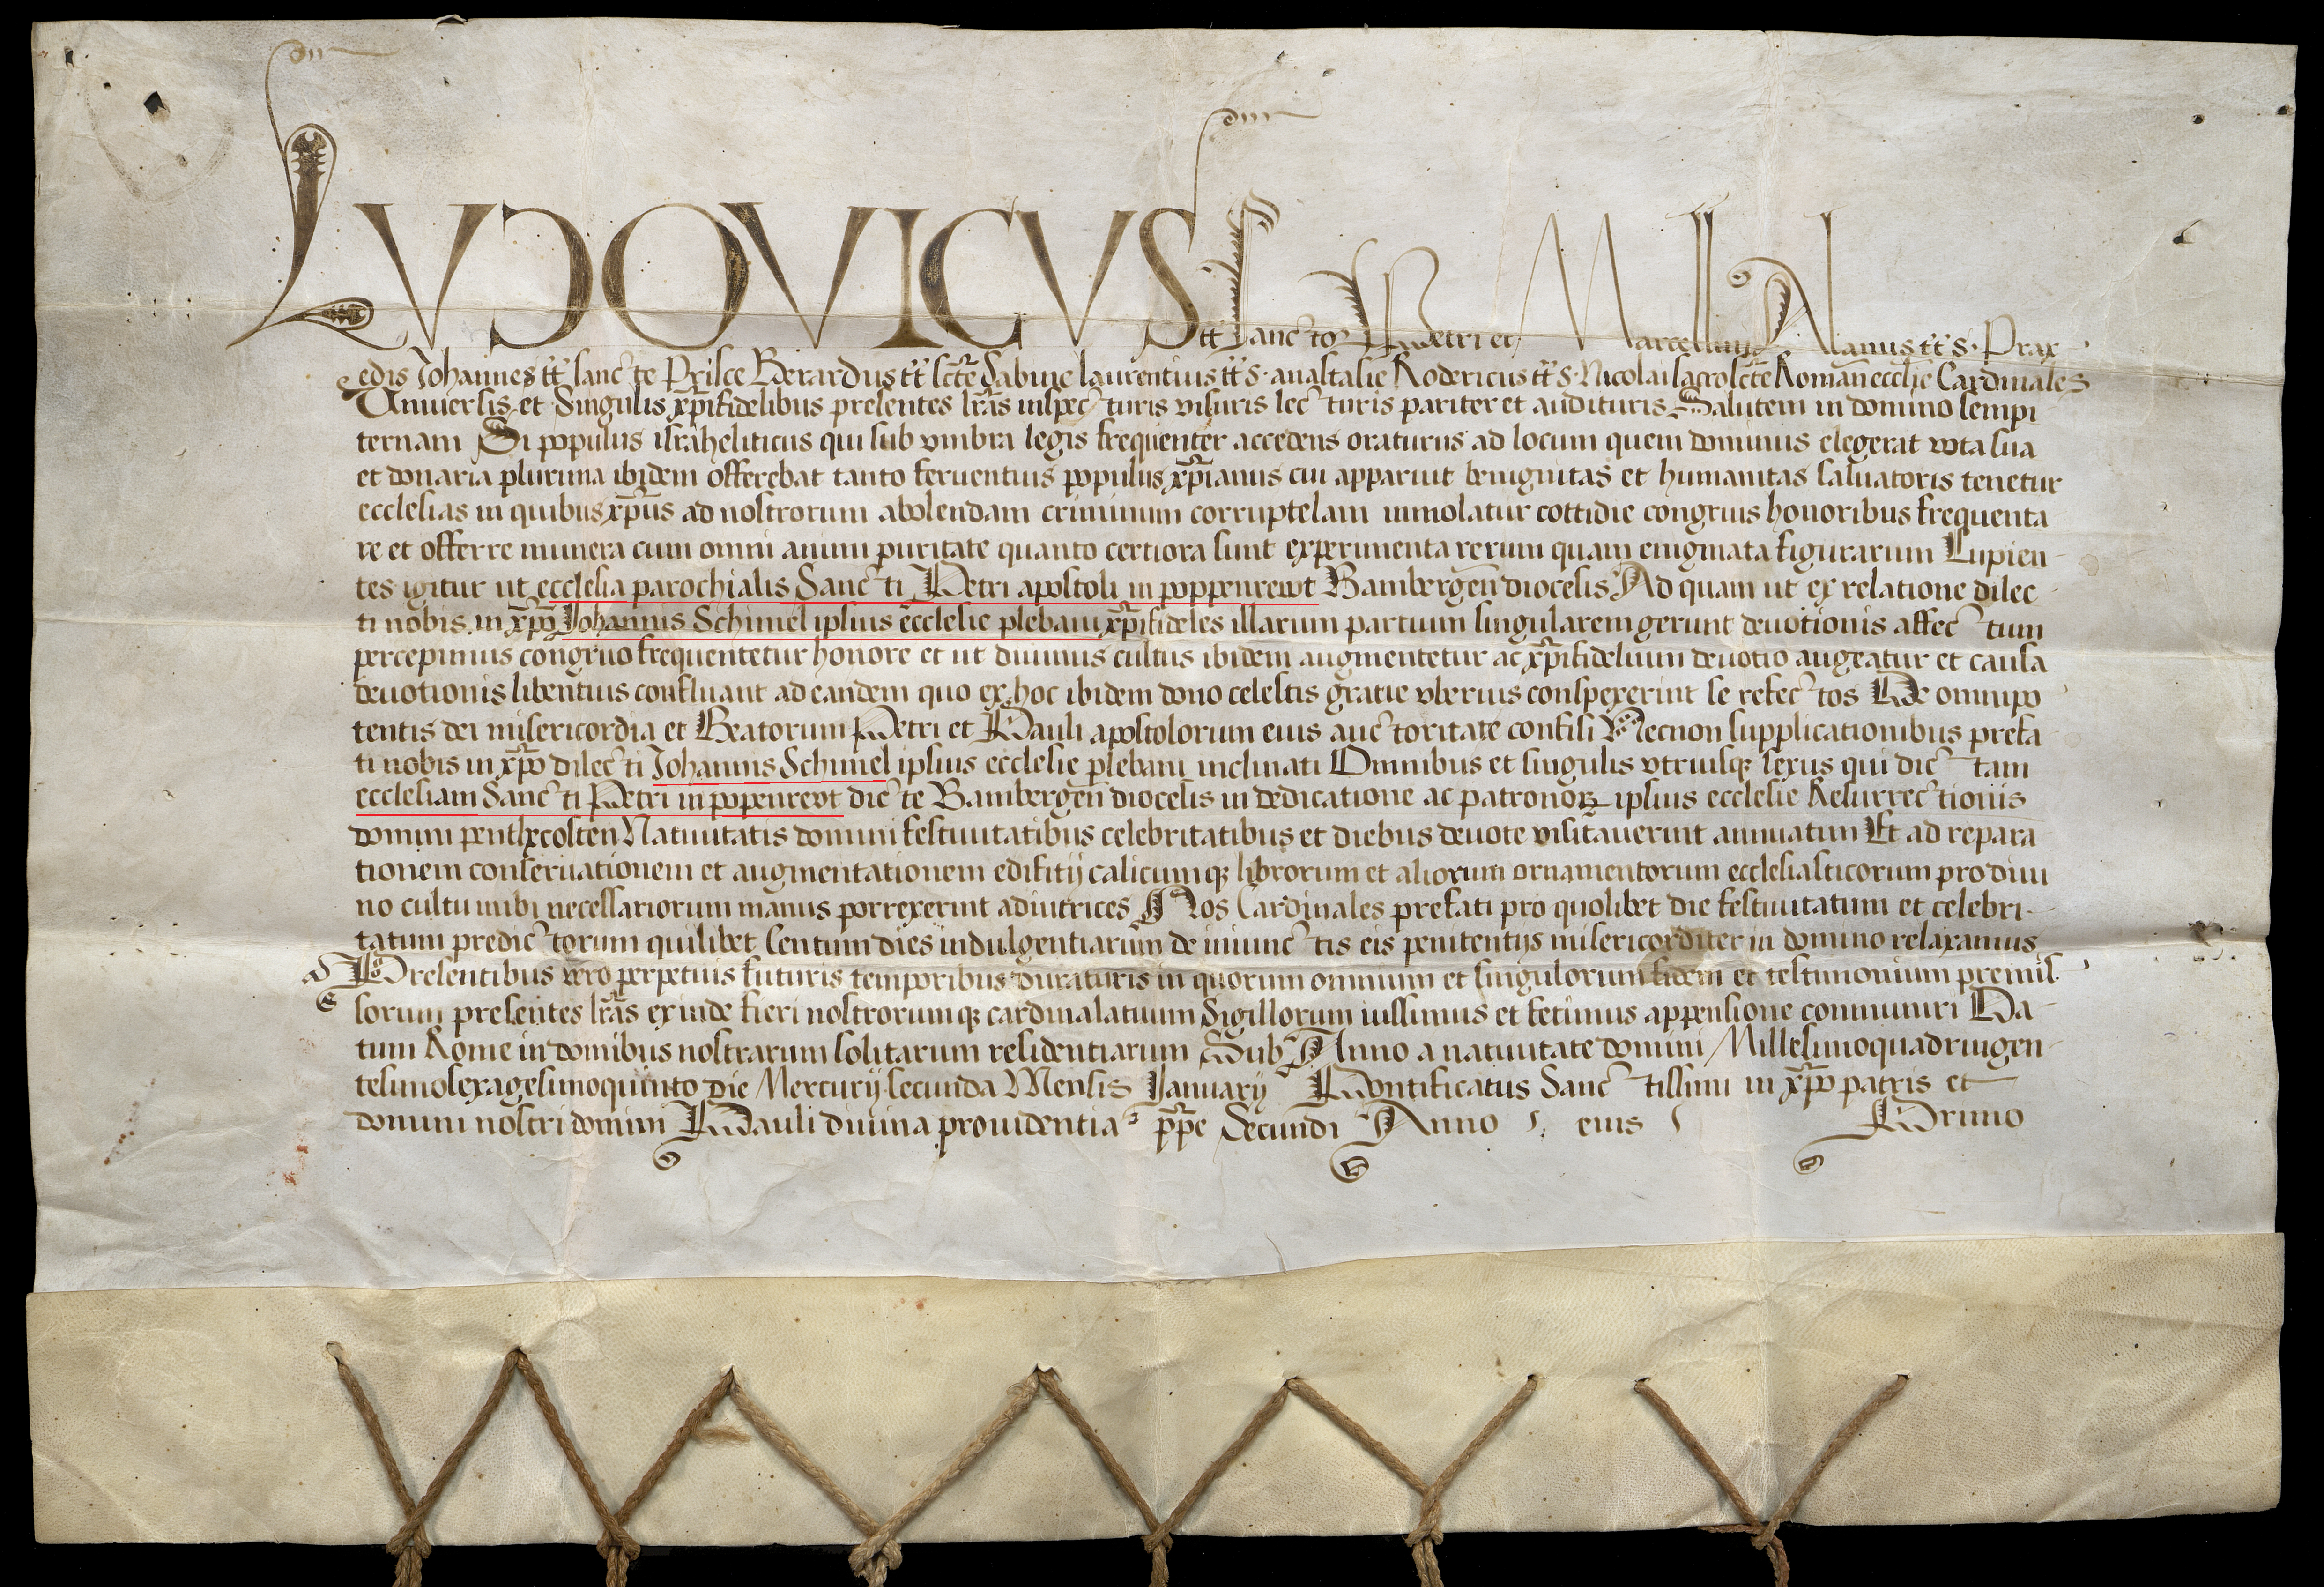 LVDOVICVS tt Sanctor Petri et Marcellini Alanus tt s. Prax
edis Johannes tt sancte Prisce Berardus tt scte Sabine laurentius tt s. anastasie Rodericus tt s. Nicolai sacroscte Roman ecclie Cardinales
Vniuersis et Singulis xpifidelibus presentes lras inspecturis visuris lecturis pariter et audituris Salutem in domino sempi
ternam Si populus israheliticus qui sub vmbra legis frequenter accedens oraturus ad locum quem dominus elegerat vota sua
et donaria plurima ibidem offerebat tanto feruentius populus xpianus cui apparuit benignitas et humanitas saluatoris tenetur
ecclesias in quibus xpus ad nostrorum abolendam criminum corruptelam inmolatur cottidie congruis honoribus frequenta
re et offerre munera cum omni animi puritate quanto certiora sunt experimenta rerum quam enigmata figurarum Cupien
tes igitur ut ecclesia parochialis Sancti Petri apostoli in poppenrewt Bambergen diocesis Ad quam ut ex relatione dilec
ti nobis in xpo Johannis Schimel ipsius ecclesie plebani xpifideles illarum partium singularem gerunt deuotionis affectum
percepimus congruo frequentetur honore et ut diuinus cultus ibidem augmentetur ac xpifidelium deuotio augeatur et causa
deuotionis libentius confluant ad eandem quo ex hoc ibidem dono celestis gratie vberius conspexerint se refectos De omnipo
tentis dei misericordia et Beatorum Petri et Pauli apostolorum eius auctoritate confisi Necnon supplicationibus prefa
ti nobis in xpo dilecti Johannis Schimel ipsius ecclesie plebani inclinati Omnibus et singulis vtriusq sexus qui dictam
ecclesiam Sancti Petri in popenrevt dicte Bambergen diocesis in dedicatione ac patronorz ipsius ecclesie Resurrectionis
domini penthecosten Natiuitatis domini festiuitatibus celebritatibus et diebus deuote visitauerint annuatim Et ad repara
tionem conseruationem et augmentationem edifitij calicumq librorum et aliorum ornamentorum ecclesiasticorum pro diui
no cultu inibi necessariorum manus porrexerint adiutrices Nos Cardinales prefati pro quolibet die festiuitatum et celebri
tatum predictorum quilibet Centum dies indulgentiarum de iniunctis eis penitentijs misericorditer in domino relaxamus
Presentibus vero perpetuis futuris temporibus duraturis in quorum omnium et singulorum fidem et testimonium premis
sorum presentes lras exinde fieri nostrorumq cardinalatuum Sigillorum iussimus et fecimus appensione communiri Da
tum Rome in domibus nostrarum solitarum residentiarum Sub Anno a natiuitate domini Millesimoquadringen
tesimosexagesimoquinto die Mercurij secunda Mensis Januarij Pontificatus Sanctissimi in xpo patris et
domini nostri domini Pauli diuina prouidentia ppe Secundi Anno eius Primo